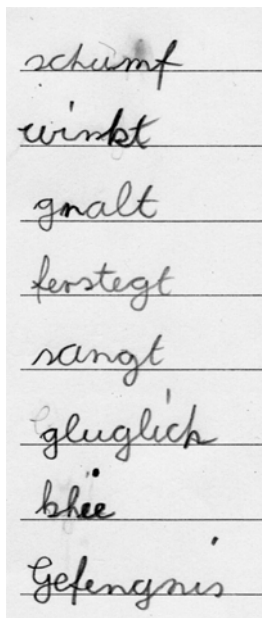 schumf
winkt
gnalt
ferstegt
sangt
gluglich
khee
Gefengnis